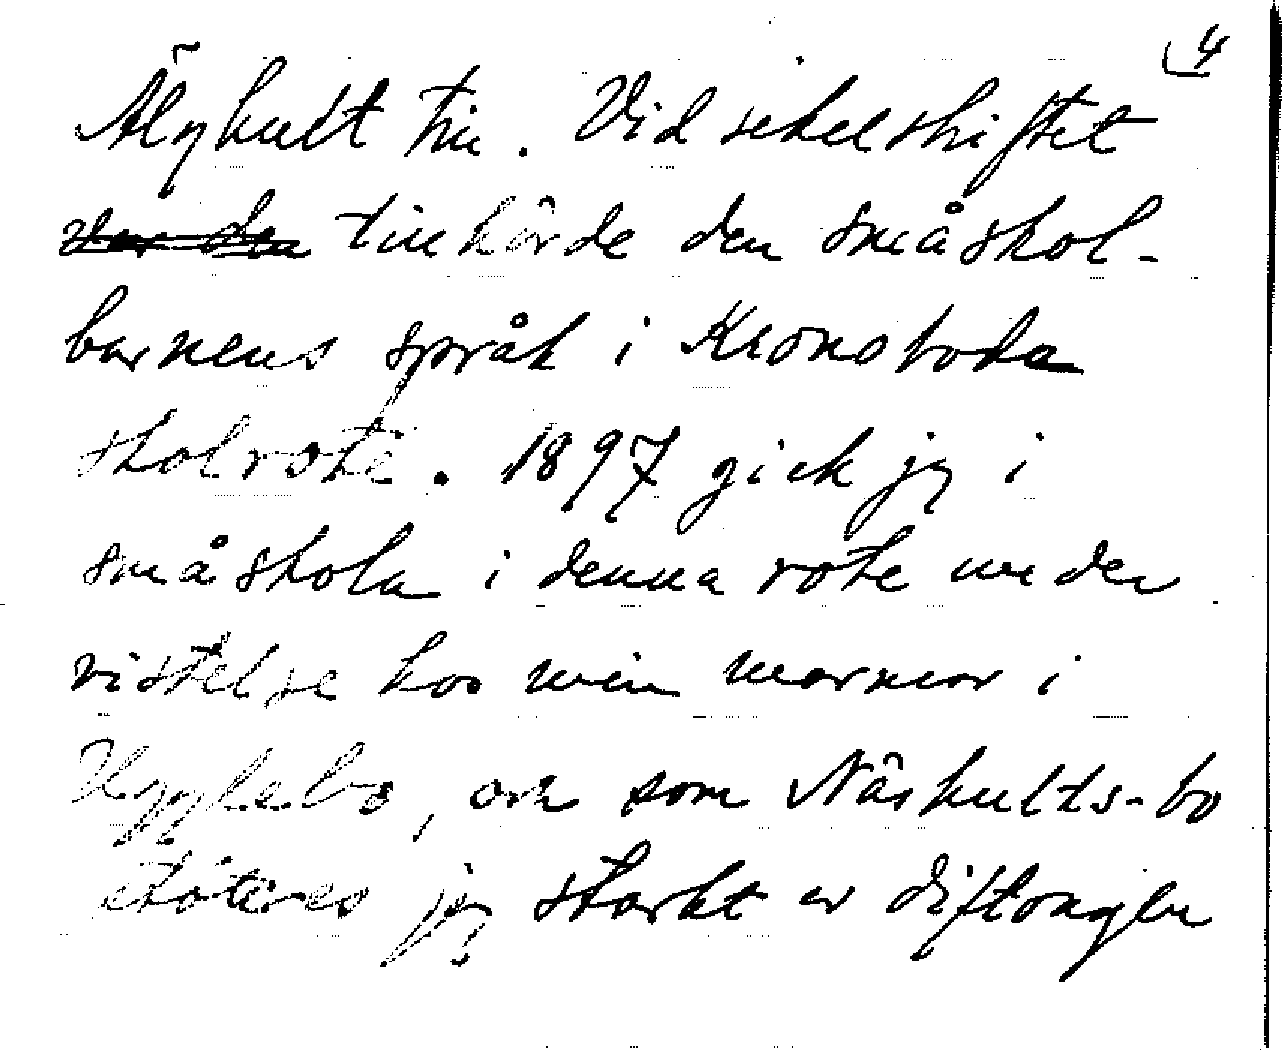 4
Älghult till. Vid sekelskiftet
var den tillhörde den småskol-
barnens språk i Kronoboda
skolrote. 1897 gick jag i
småskola i denna rote under
vistelse hos min mormor i
Ugglebo, och som Nåshults-bo
stöttes jag starkt av diftongen